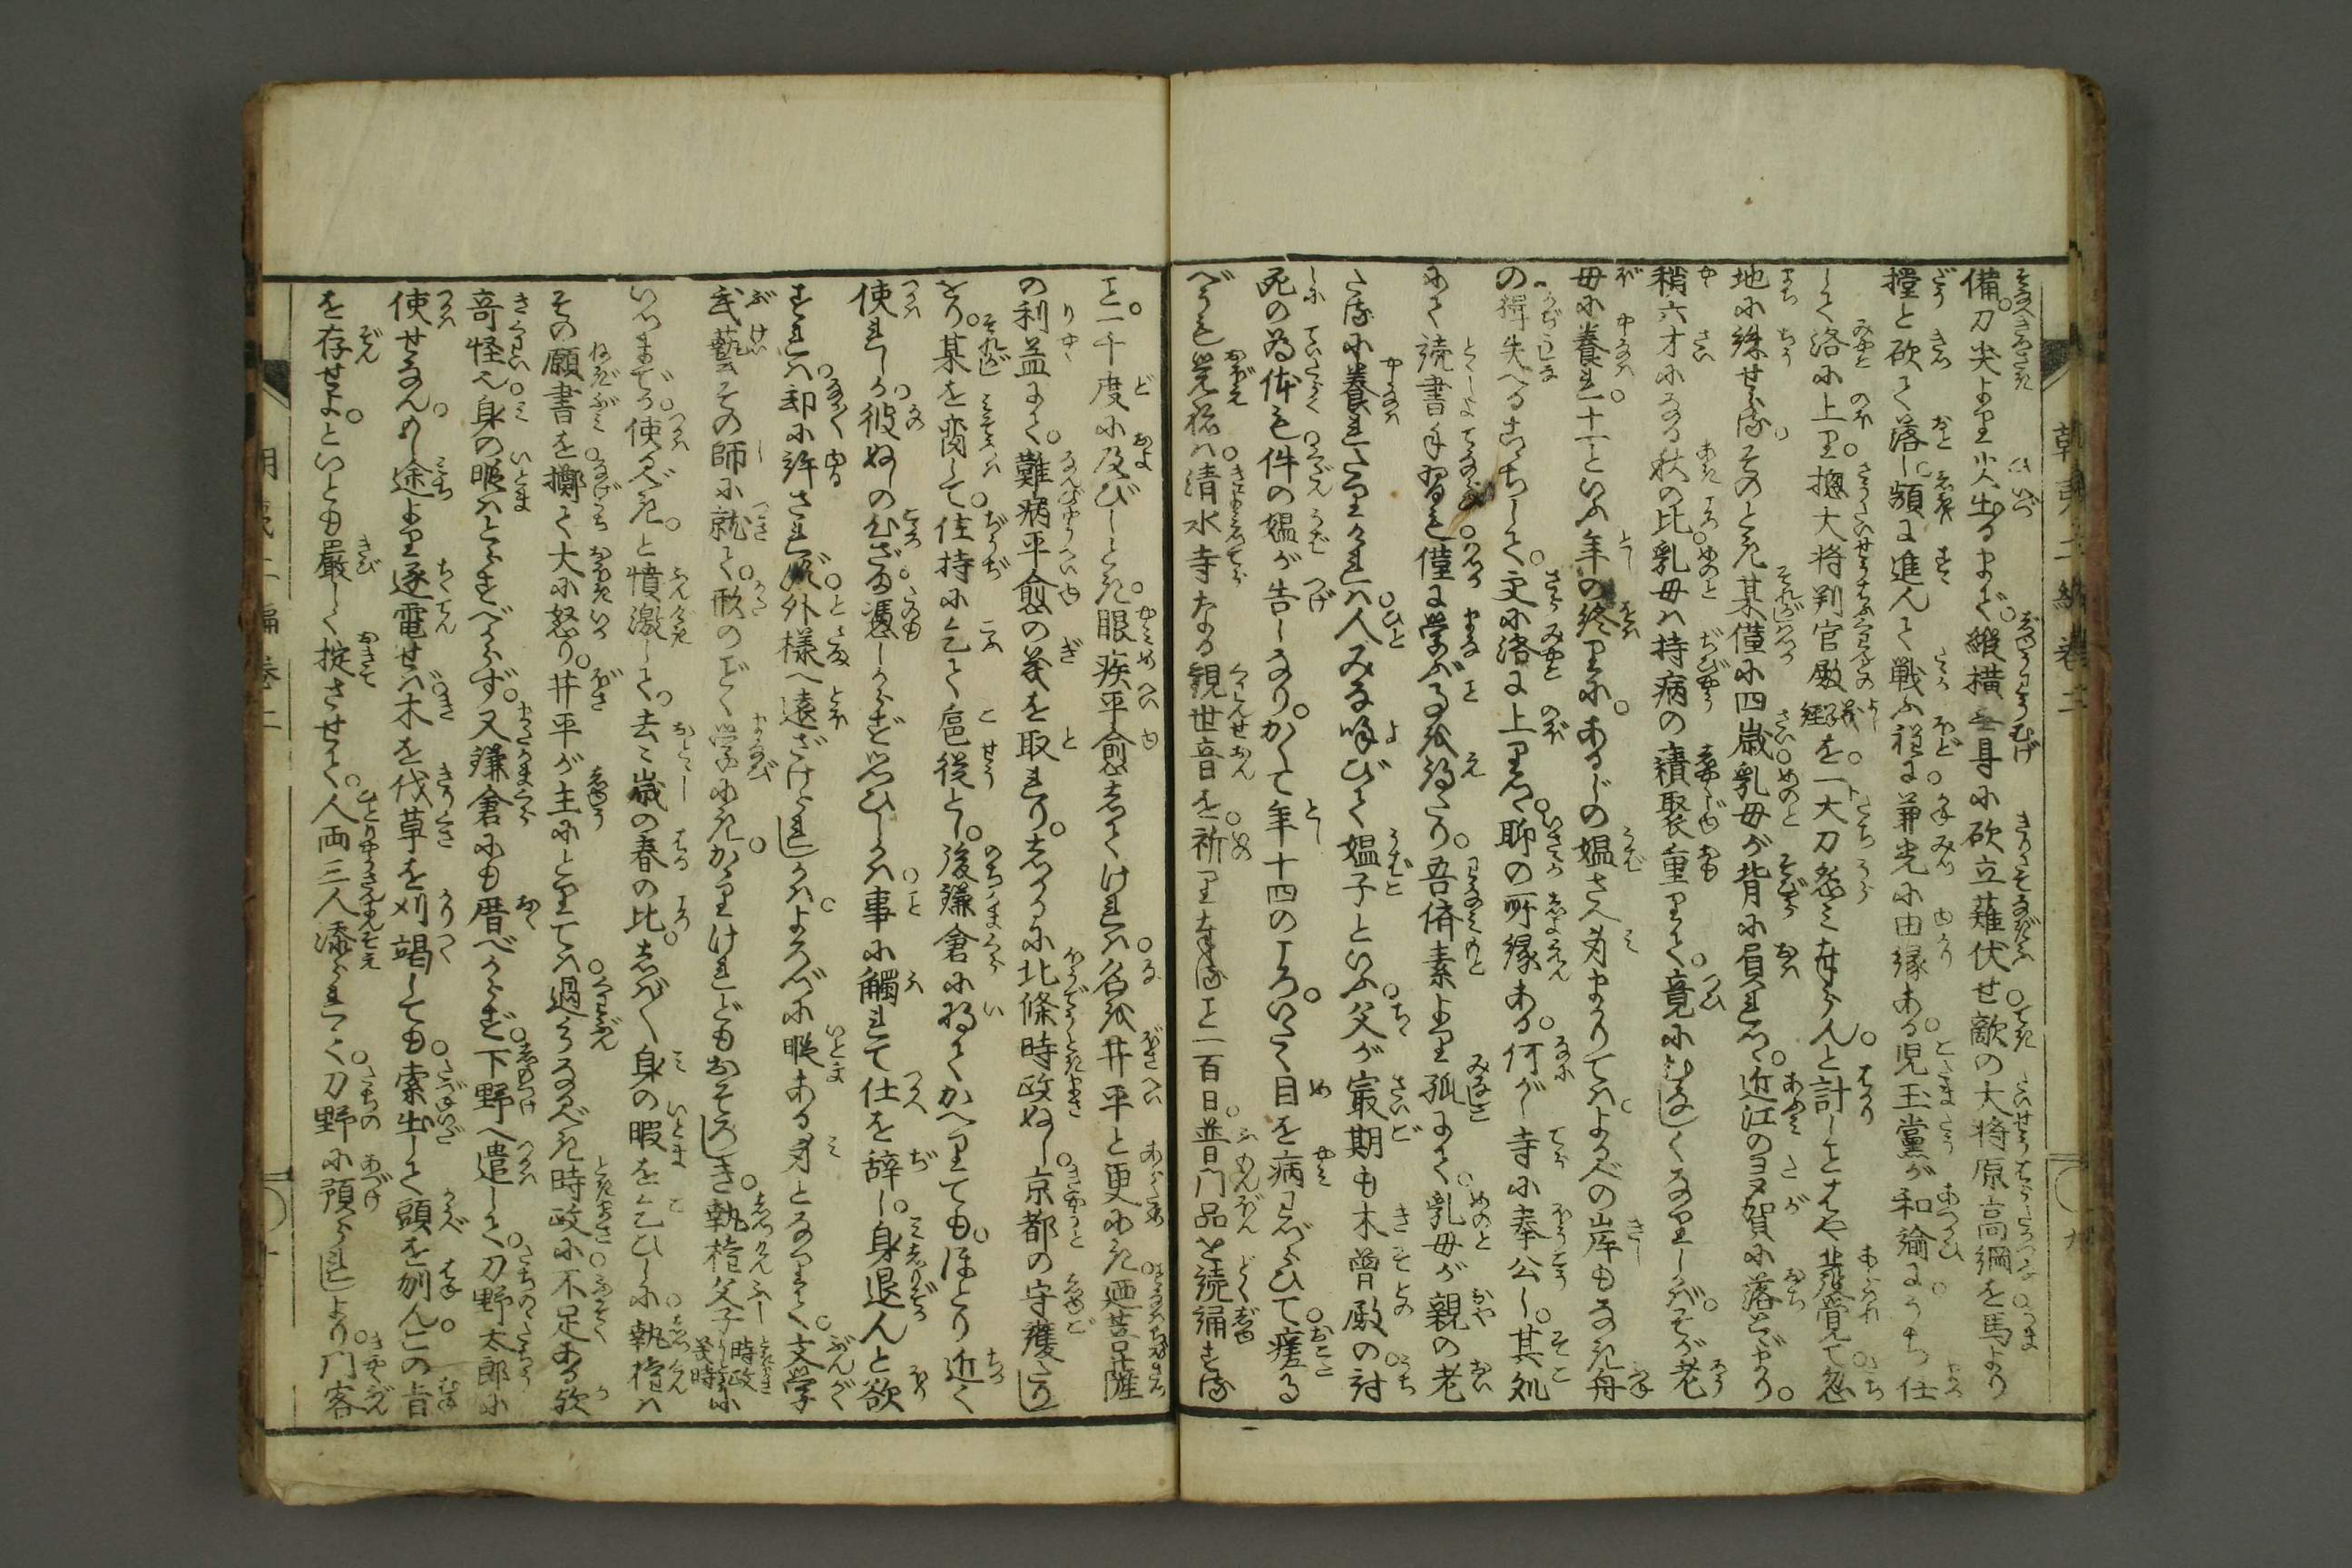 備。刀尖より火出るまで。縦横無碍に砍立薙伏せ。敵の大将原高綱を。馬より
撞と砍て落し。頻に進んで戦ふ程に。兼光に由縁ある。児玉黨が和論に。うち仕
して洛に上り。摠大将判官殿義経を。一大刀怨み奉らんと。計しことはや発覚て。忽
地に誅せらる。そのとき某僅に四歳。乳母が背に負れつゝ。近江のヨヌ賀に落とゞまり。
稍六才になる秋の比。乳母は持病の積聚重りて。竟にむなしくなりしかば。そが老
母に養れ。十一といふ年の終りに。あるじの媼さへ身まかりては。よるべの岸もなき舟
の。楫失へるこゝちして。又に洛に上りつゝ。聊の所縁ある。何がし寺に奉公し。其処
にて読書手習も。僅に学ぶことを得たり。吾儕素より孤にて。乳母が親の老
たるに養れたりければ。人みな喚びて媼子といふ。父が最期も木曽殿の。討
死の為体も。件の媼が告しなり。かくて年十四のころ。いたく目を病わづらひて。瘥る
べうも覚ねば。清水寺なる観世音を。祈り奉ること一百日。普門品を読誦する
こと。一千度に及びしとき。眼疾平愈してければ。名を井平と更めき。廼菩薩
の利益にて。難病平愈の義を取れり。しかるに北條時政ぬし。京都の守護たり
をり。某を痩して。住持に乞て扈従とし。後鎌倉に将てかへりても。ほとり近く
使れしが。彼ぬしの心ざま。憑しからずと思ひしかば。事に觸れて仕を辞し。身退んと欲
すれば。却に許されず。外様へ遠ざけられしかば。よろづに暇ある身となりて。文学
武藝その師に就て。形のごとく学にき。かゝりけれどもおそろしき。執権父子時政義時に
いつまでか。使るべき。と憤激して。去々歳の春の比。しば〳〵身の暇を乞ひしに。執権は
その願書を擲て大に怒り。井平が主にとりては。過分なるべき時政に。不足ある歟
奇怪也。身の暇はとらすべからず。又鎌倉にも厝べからず。下野へ遣して。刀野太郎に
使せなん。もし途より逐電せば。木を伐草を刈竭しても。索出して頭を刎ん。この旨
を存ぜよ。といとも嚴しく掟させて。人両三人添られつゝ。刀野に預られしより。門客